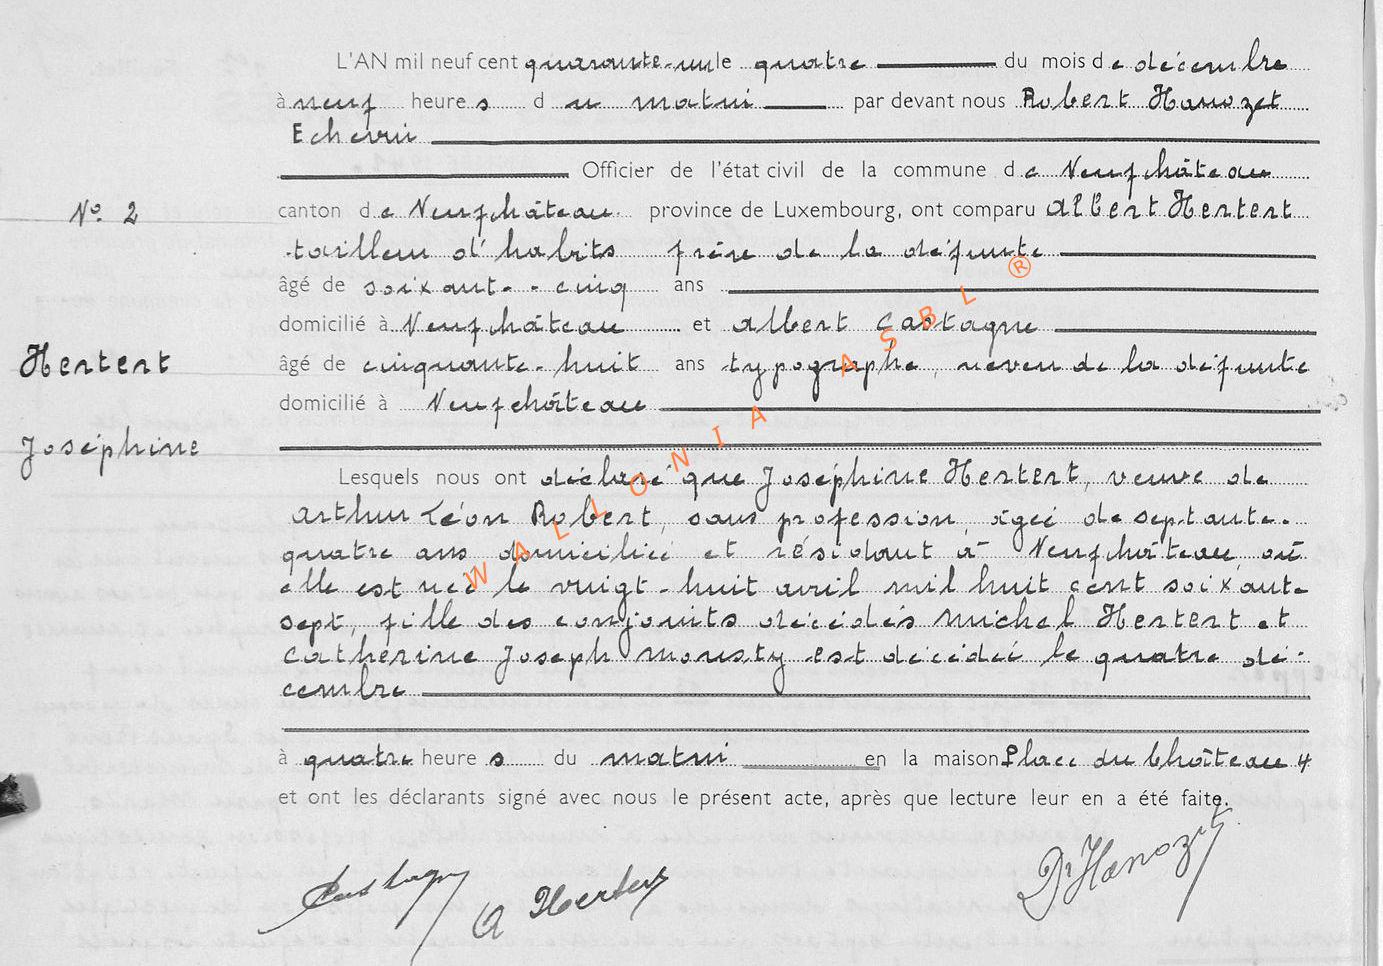 L'AN mil neuf cent quarante-un le quatre du mois de décembre
à neuf heures du matin par devant nous Robert Hanozet
Echevin
Officier de l'état civil de la commune de Neufchâteau
N° 2
canton de Neufchâteau province de Luxembourg, ont comparu Albert Hertert
tailleur d'habits frère de la défunte
âgé de soixante-cinq ans
domicilié à Neufchâteau et Albert Castagne
Hertert
âgé de cinquante-huit ans typographe, neveu de la défunte
domicilié à Neufchâteau
Joséphine
Lesquels nous ont déclaré que Joséphine Hertert, veuve de
Arthur Léon Robert, sans profession, âgée de septante-
quatre ans domiciliée et résidant à Neufchâteau, où
elle est née le vingt-huit avril mil huit cent soixante
sept, fille des conjoints décédés Michel Hertert et
Catherine Joseph Mousty est décédée le quatre dé-
cembre
à quatre heures du matin en la maison Place du Château 4
et ont les déclarants signé avec nous le présent acte, après que lecture leur en a été faite.
Castagne
A Hertert
Dr Hanozet
WALLONIA ASBL ®